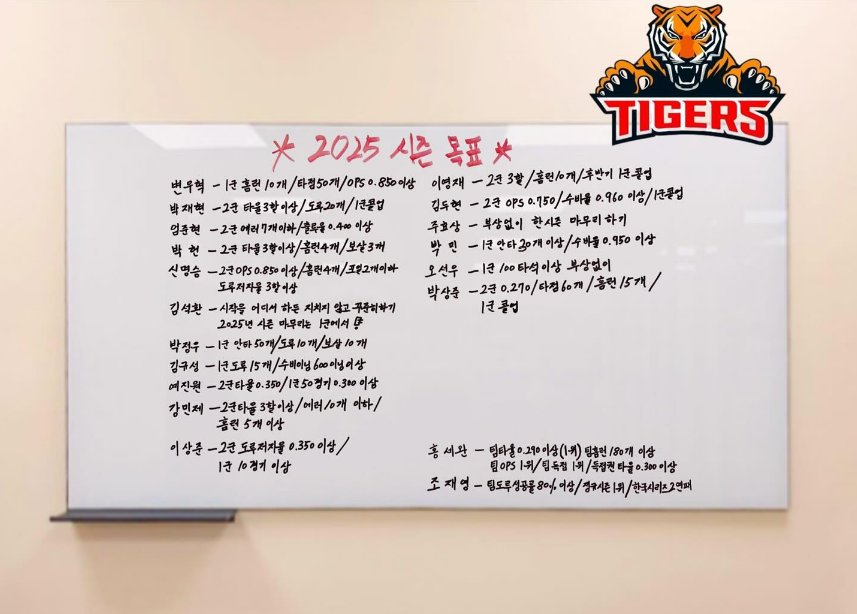 TIGERS
* 2025 시즌 목표 *
변우혁 - 1군 홈런 10개/타점50개/OPS 0.850이상
박재현 - 2군 타율3할이상/도루20개/1군콜업
엄준현 - 2군 에러7개이하/출루율 0.400 이상
박 헌 - 2군 타율3할이상/홈런4개/보살3개
신명승 - 2군OPS 0.850이상/홈런4개/포일2개이하
도루저지율 3할이상
김석환 - 시작을 어디서 하든 지치지 않고 꾸준히하기
2025년 시즌 마무리는 1군에서
박정우 - 1군 안타50개/도루10개/보살10개
김규성 - 1군도루15개/수비이닝600이닝이상
예진원 - 2군타율0.350/1군50경기0.300이상
강민제 - 2군타율3할이상/에러10개 이하/
홈런 5개 이상
이상준 - 2군 도루저지율 0.350이상/
1군 10경기 이상
이영재 - 2군 3할/홈런10개/후반기 1군콜업
김두현 - 2군 OPS 0.750/수비율 0.960 이상/1군콜업
주효상 - 부상없이 한시즌 마무리하기
박 민 - 1군 안타20개이상/수비율0.950이상
오선우 - 1군 100타석이상 부상없이
박상준 - 2군 0.270/타점60개/홈런15개/
1군콜업
홍세완 - 팀타율0.290이상(1위) 팀홈런180개 이상
팀OPS 1위/팀득점 1위/득점권 타율0.300이상
조재영 - 팀도루성공률80% 이상/정규시즌 1위/한국시리즈2연패